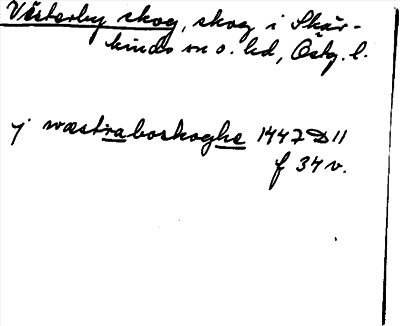 Västerby skog, skog i Skär-
kinds sn o. hd, Östg. l.
j wæstraboskoghe 1447 D 11
f 34 v.